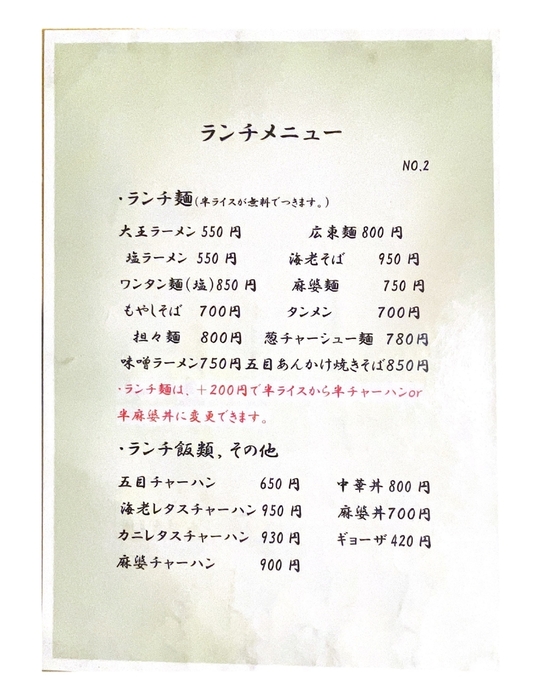 ランチメニュー
NO.2
・ランチ麺(半ライスが無料でつきます。)
大王ラーメン 550 円 広東麺 800 円
塩ラーメン 550 円 海老そば 950 円
ワンタン麺(塩)850 円 麻婆麺 750 円
もやしそば 700円 タンメン 700円
担々麺 800円 葱チャーシュー麺 780円
味噌ラーメン750円 五目あんかけ焼きそば850円
・ランチ麺は、+200円で半ライスから半チャーハンor
半麻婆丼に変更できます。
・ランチ飯類,その他
五目チャーハン 650 円 中華丼 800 円
海老レタスチャーハン 950 円 麻婆丼700円
カニレタスチャーハン 930 円 ギョーザ 420 円
麻婆チャーハン 900 円